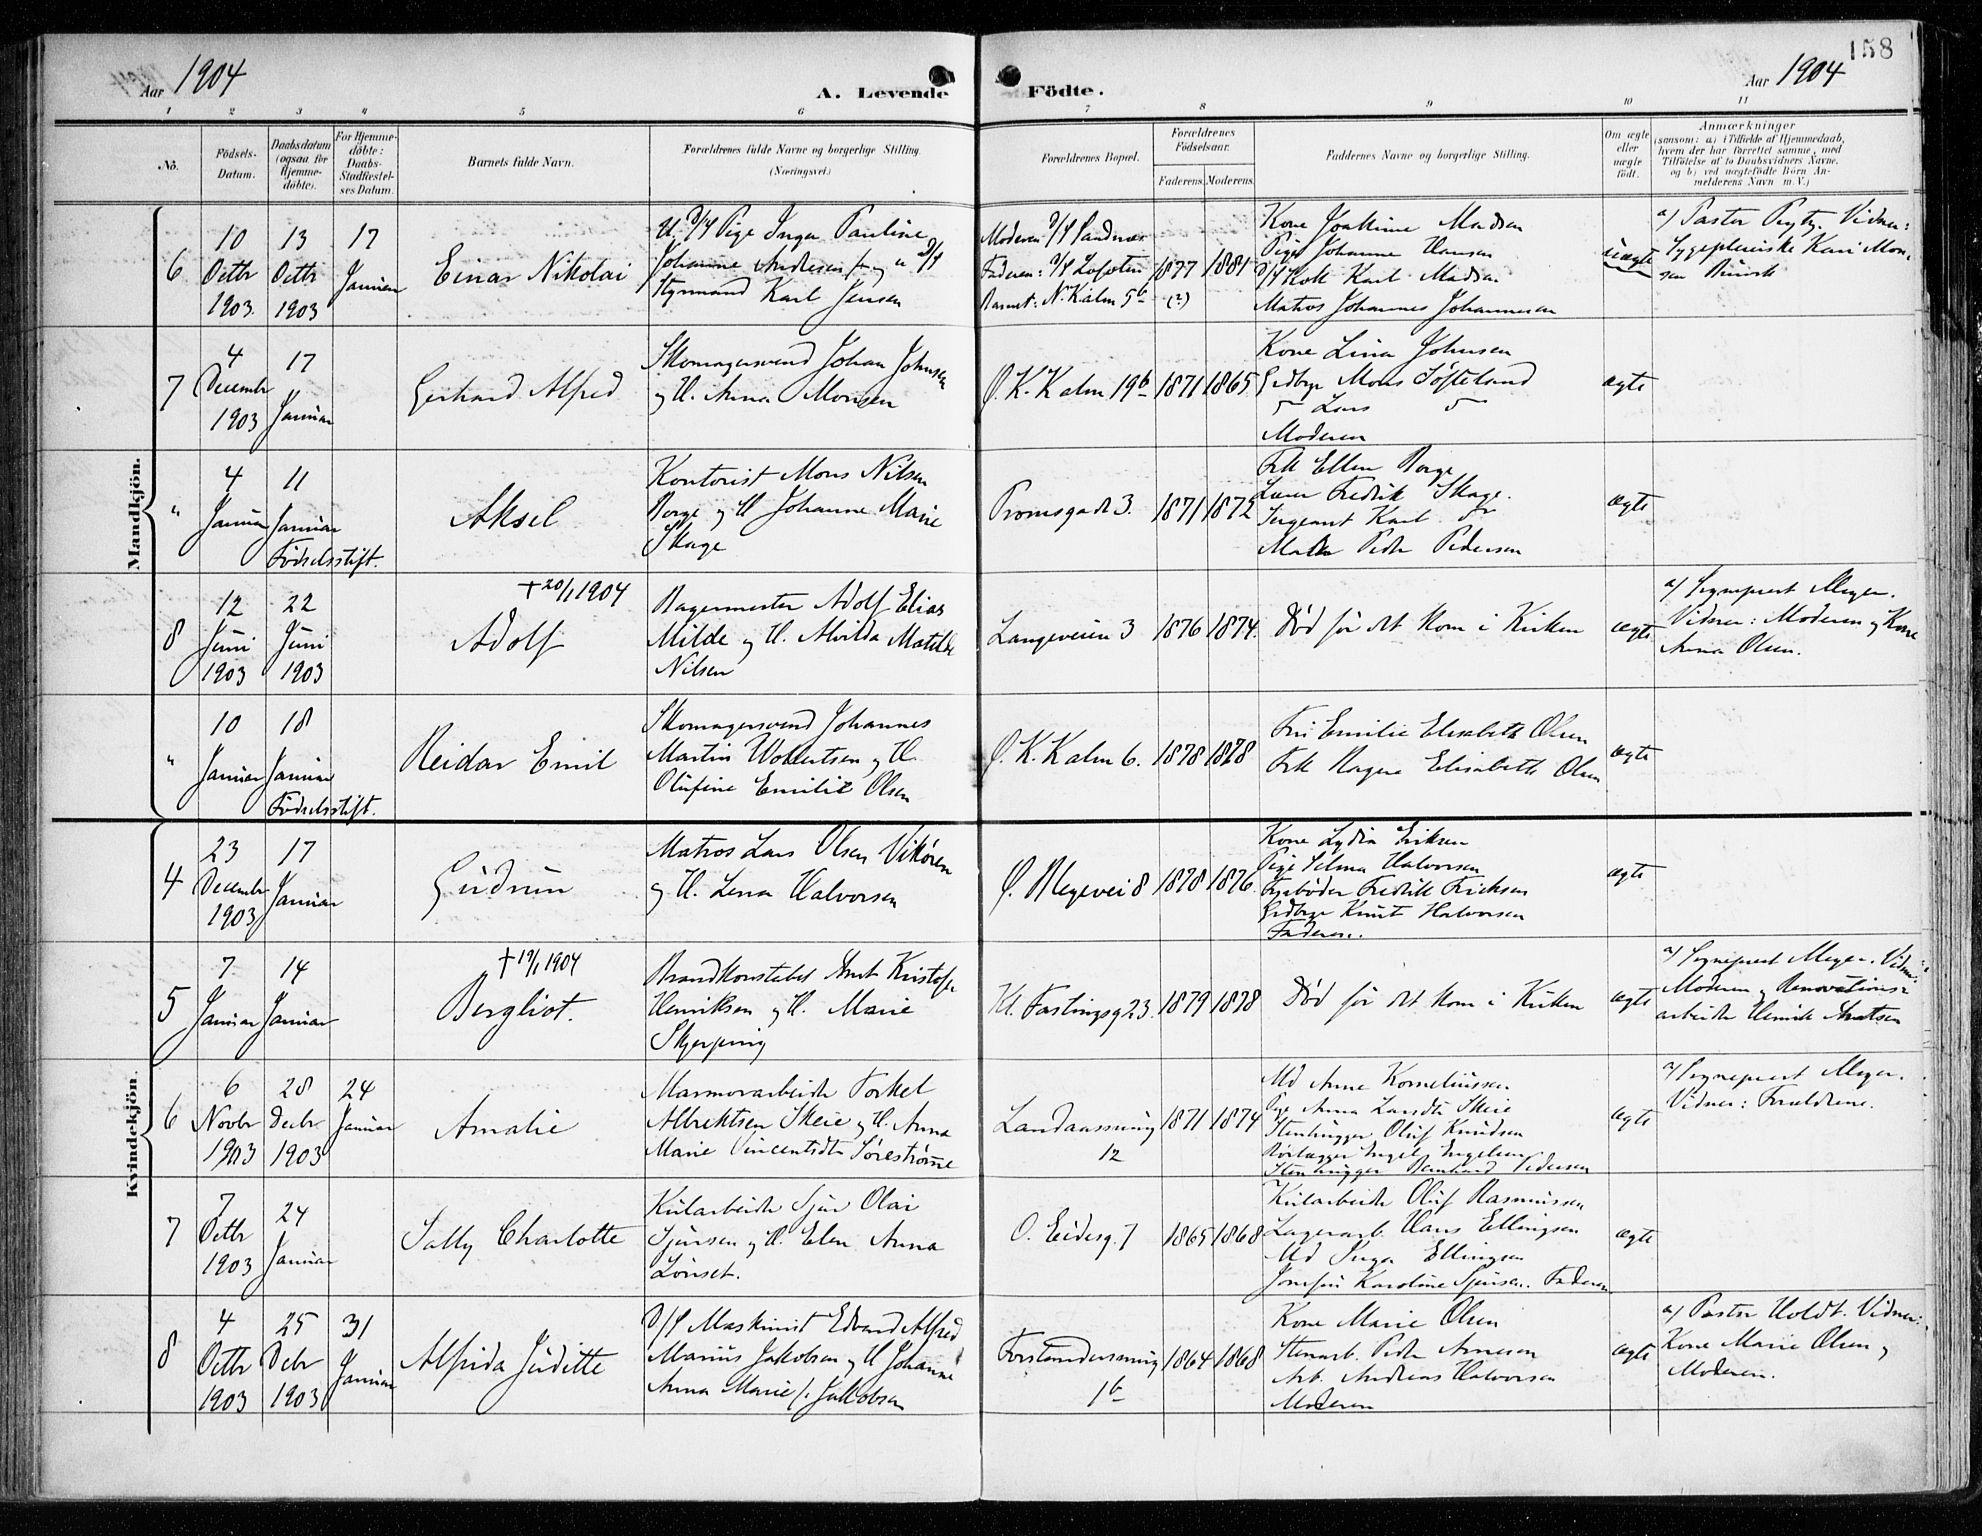 158
Aar 1904
A. Levende Födte.
Aar 1904
1 2 3 4 5 6 7 8 9 10 11
Nō.
Födsels-Datum.
Daabsdatum (ogsaa for Hjemme-döbte).
For Hjemme-döbte: Daabs-Stadfæstel-ses Datum.
Barnets fulde Navn.
Forældrenes fulde Navne og borgerlige Stilling. (Næringsvei.)
Forældrenes Bopæl.
Forældrenes Födselsaar.
Faderens. Moderens.
Faddernes Navne og borgerlige Stilling.
Om ægte eller uægte födt.
Anmærkninger
(saasom: a) i Tilfælde af Hjemmedaab,
hvem der har forrettet samme, med
Tilföielse af to Daabsvidners Navne,
og b) ved uægtefödte Börn An-
melderens Navn m. V.)
Mandkjön.
6
10 Octbr 1903.
13 Octbr 1903
17 Januar
Einar Nikolai
Pige Inga Pauline
Johanne Andresen
Styrmand Karl Jensen
Moderen: Sandnæs
Faderen: Lofoten
Barnet: N. Kalm 5b
1877 (?)
1881
Kone Joakime Madsen
Pige Johanne Hansen
Kok Karl Madsen
Matros Johannes Johannesen
uægte
a) Pastor Vidner:
Sygepleierske Kari Mon-
sen
7
4 Decembr 1903
17 Januar
Gerhard Alfred
Skomagersvend Johan Johnsen
og H. Anna Monsen
Ø. K. Kalm 19b
1871
1865
Kone Lina Johnsen
Grdbrgr Mons Töfteland
" Lars "
Moderen
ægte
"
4 Januar
11 Januar
Födselsstift.
Aksel
Kontorist Mons Nilsen
Borge og H Johanne Marie
Skage
Promsgade 3.
1871
1872
Frk Ellen Borge
Lærer Fredrik Skage.
Sergeant Karl do
Peder Pedersen
ægte
8
12 Juni 1903
22 Juni 1903
+ 20/1 1904
Adolf
Bagermester Adolf Elias
Milde og H. Alvilda Matilde
Nilsen
Langeveien 3
1876
1874.
Död för det kom i Kirken
ægte
a) Sognepræst Meyer.
Vidner: Moderen og Kone
Anna Olsen.
"
10 Januar
18 Januar
Födselsstift.
Reidar Emil
Skomagersvend Johannes
Martin Wobertsen og H.
Olufine Emilie Olsen
Ø. K. Kalm 6.
1878
1878
Fru Emilie Elisabeth Olsen
Frk Ragna Elisabeth Olsen
ægte
Kvindekjön.
4
23 Decembr 1903
17 Januar
Gudrun
Matros Lars Olsen Vikören
og H. Lena Halvorsen
Ø. Blegevei 8
1878
1876.
Kone Lydia Eriksen
Pige Selma Halvorsen
Fyrböder Fredrik Fricksen
Grdbrgr Knut Halvorsen
Faderen.
ægte
5
7 Januar
14 Januar
+ 19/1 1904
Bergliot.
Brandkonstabel Arnt Kristofer
Henriksen og H. Marie
Skjerping
Kl. Fastingsg 23.
1879
1878
Död för det kom i Kirken
ægte
a) Sognepræst Meyer. Vidner:
Moderen og Renovations-
arbeider Henrik Arntsen
6
6 Novbr 1903
28 Decbr. 1903
24 Januar
Amalie
Marmorarbeider Torkel
Albrektsen Skeie og H. Anna
Marie Vincentsdtr Sörestrømme
Landaassmug 12
1871
1874
Md Anne Korneliussen
Pige Anna Larsdtr Skeie
Stenhugger Oluf Knudsen
Rörlægger Ingel Ingelsen
Stenhugger Bernhard Pedersen
ægte
a) Sognepræst Meyer.
Vidner: Forældrene.
7
7 Octbr 1903
24 Januar
Sally Charlotte
Kularbeider Sjur Olai
Sjursen og H. Elen Anna
Lönset.
O. Eidesg. 7
1865
1868
Kularbeider Oluf Rasmussen
Lagerarb. Hans Ellingsen
Md Inga Ellingsen
Josefin Karoline Sjursen. Faderen
ægte
8
4 Octbr 1903
25 Debr 1903
31 Januar
Alfrida Juditte
D/S Maskinist Edvard Alfred
Marius Jakobsen og H Johanne
Anna Marie f. Jakobsen
Forstandersmug 1b
1864
1868
Kone Marie Olsen
Stenarb. Peder Arnesen
Arb. Andreas Halvorsen
Moderen
ægte
a) Pastor Holdt. Vidner:
Kone Marie Olsen og
Moderen.